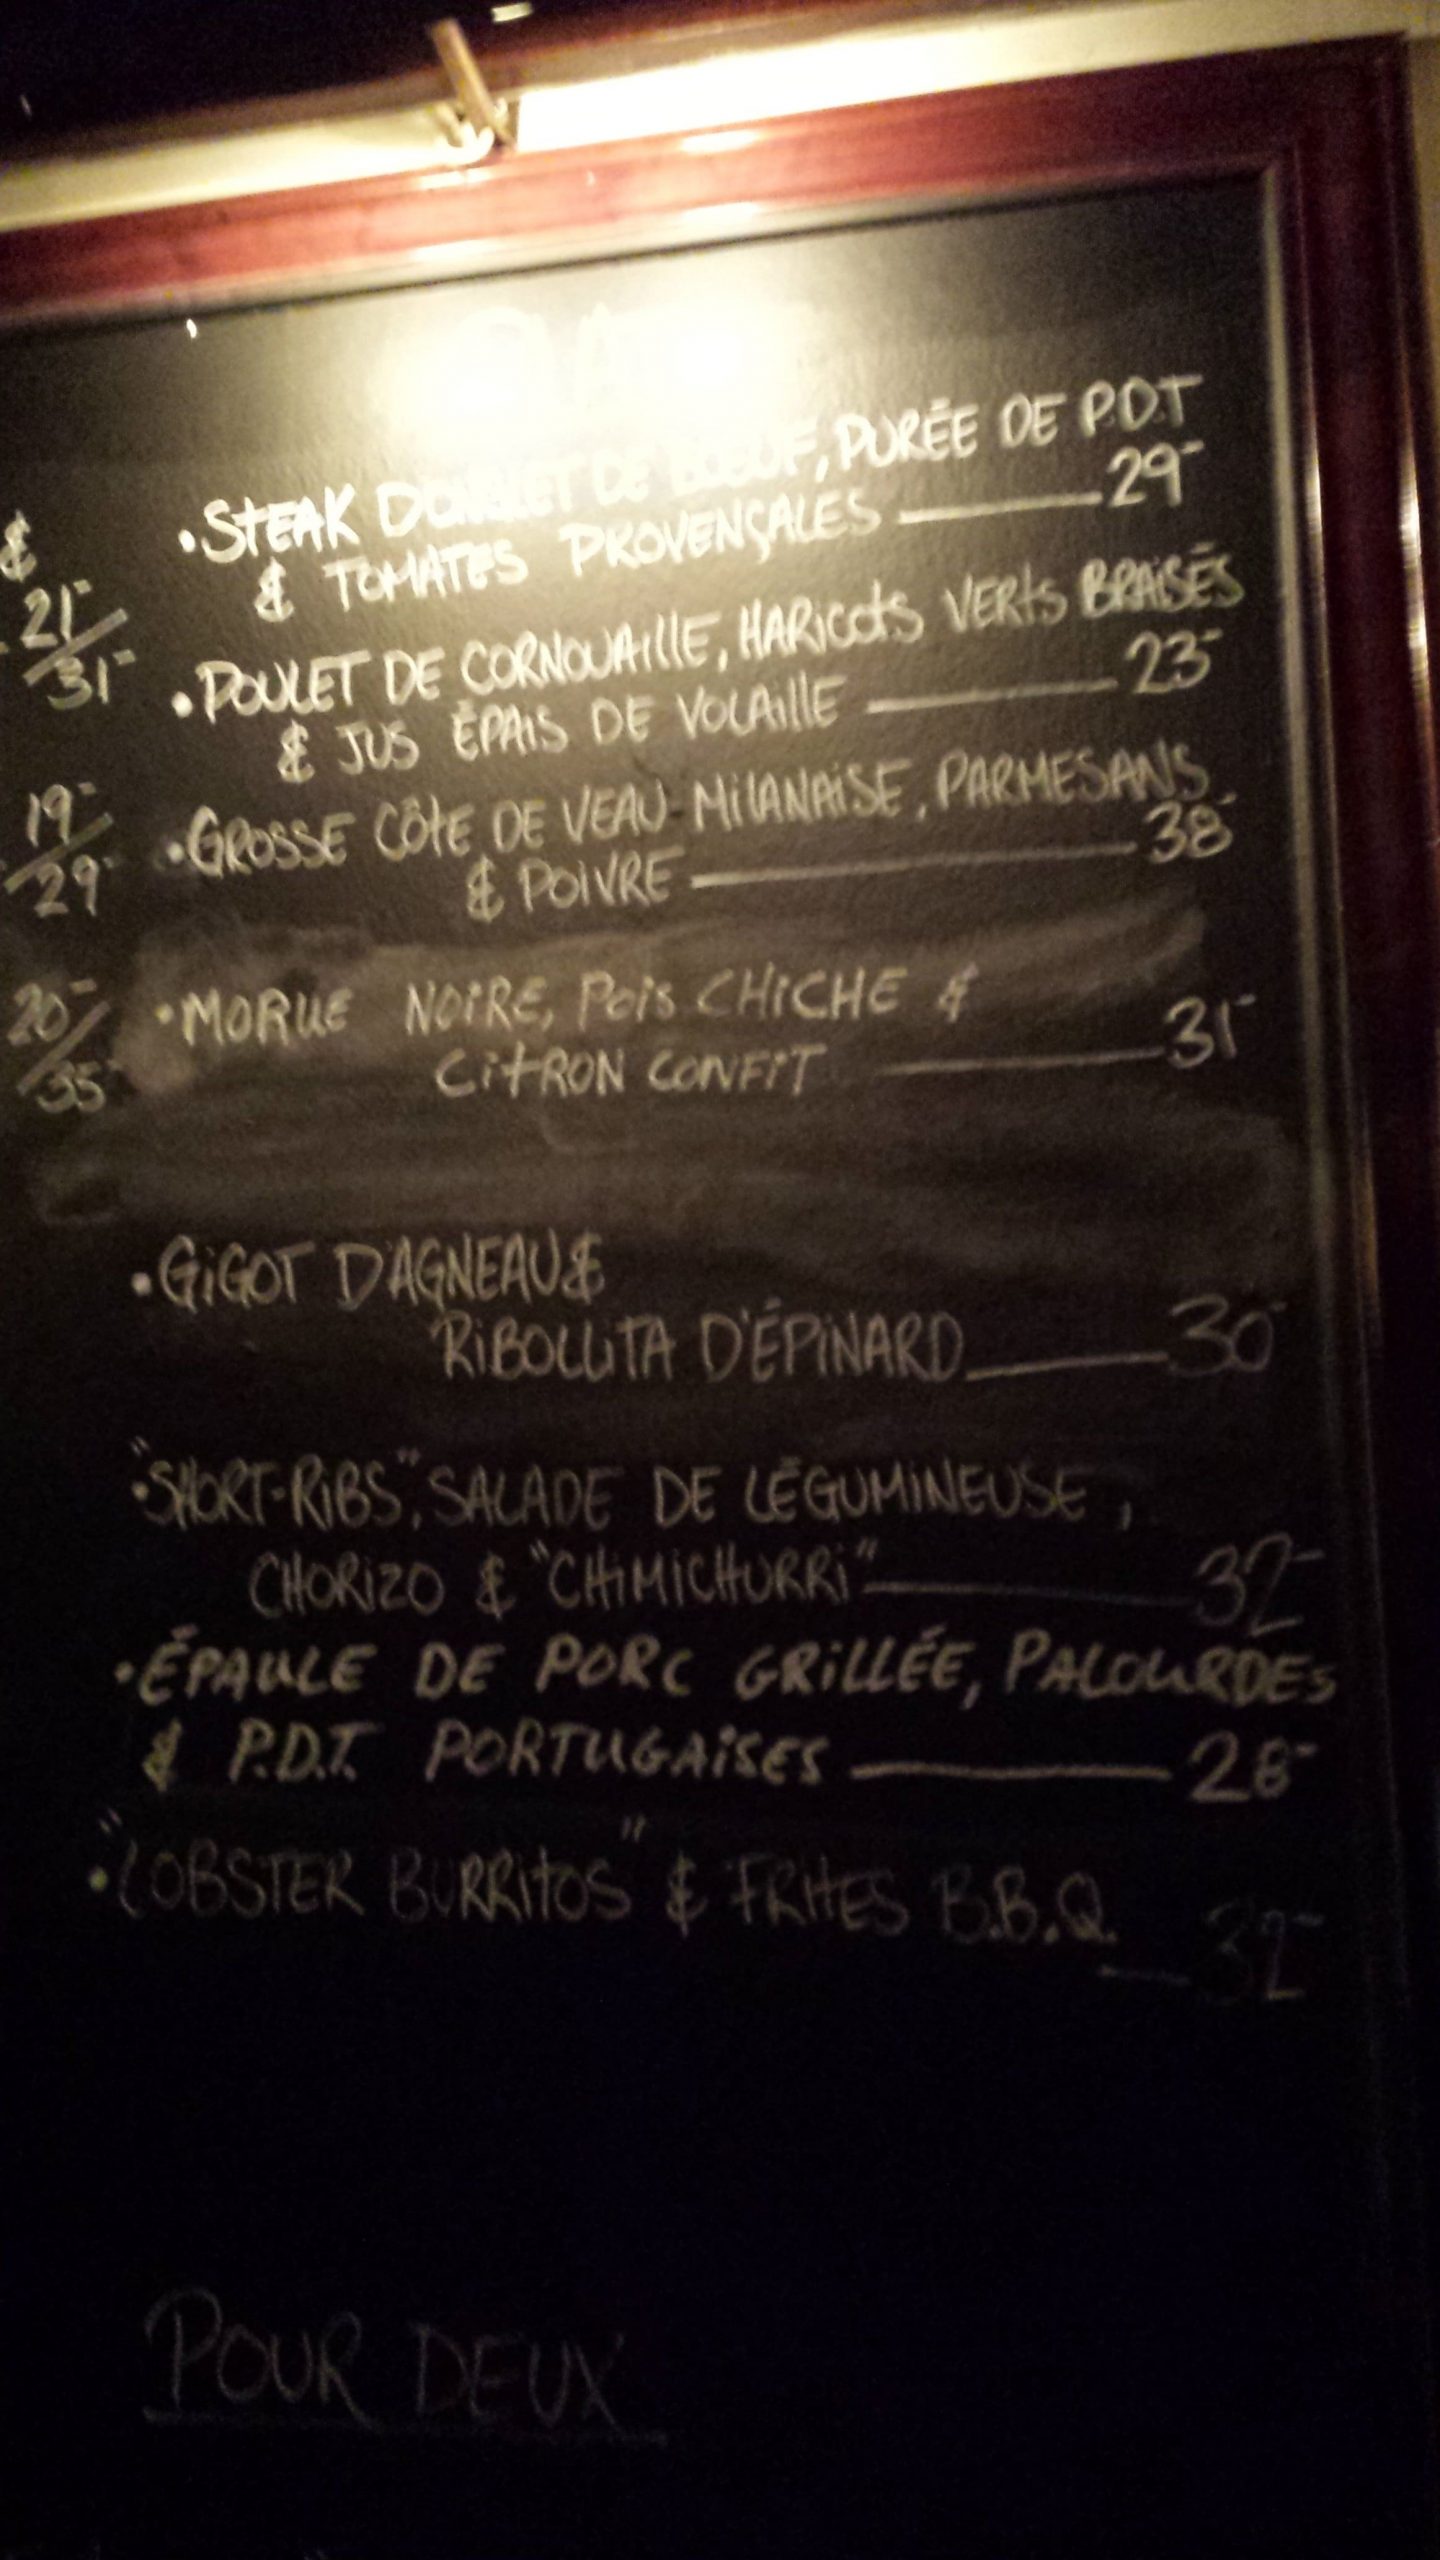 • STEAK D'ONGLET DE BŒUF, PURÉE DE P.D.T
& TOMATES PROVENÇALES — 29-
• POULET DE CORNOUAILLE, HARICOTS VERTS BRAISÉS
& JUS ÉPAIS DE VOLAILLE — 23-
• GROSSE CÔTE DE VEAU-MILANAISE, PARMESANS
& POIVRE — 38-
• MORUE NOIRE, POIS CHICHE &
CITRON CONFIT — 31-
• GIGOT D'AGNEAU &
RIBOLLITA D'ÉPINARD — 30-
• "SHORT-RIBS", SALADE DE LÉGUMINEUSE,
CHORIZO & "CHIMICHURRI" — 32-
• ÉPAULE DE PORC GRILLÉE, PALOURDES
& P.D.T. PORTUGAISES — 28-
• "LOBSTER BURRITOS" & FRITES B.B.Q.
— 32-
POUR DEUX
&
21-/31-
19-/29-
20-/35-